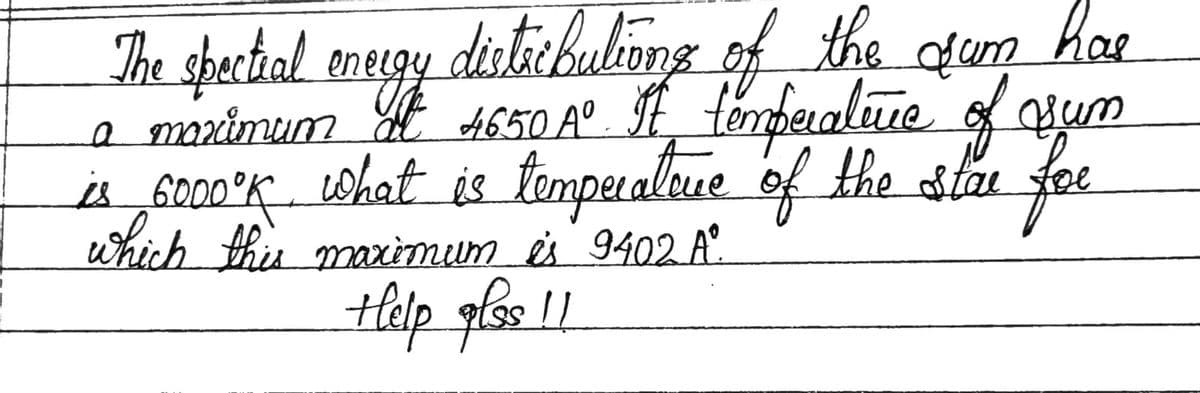 The spectral energy distributiong of the sum has
a maximum at 4650 A° If temperature of sum
is 6000°K, what is temperature of the star for
which this maximum is 9402 A°.
Help plss !!